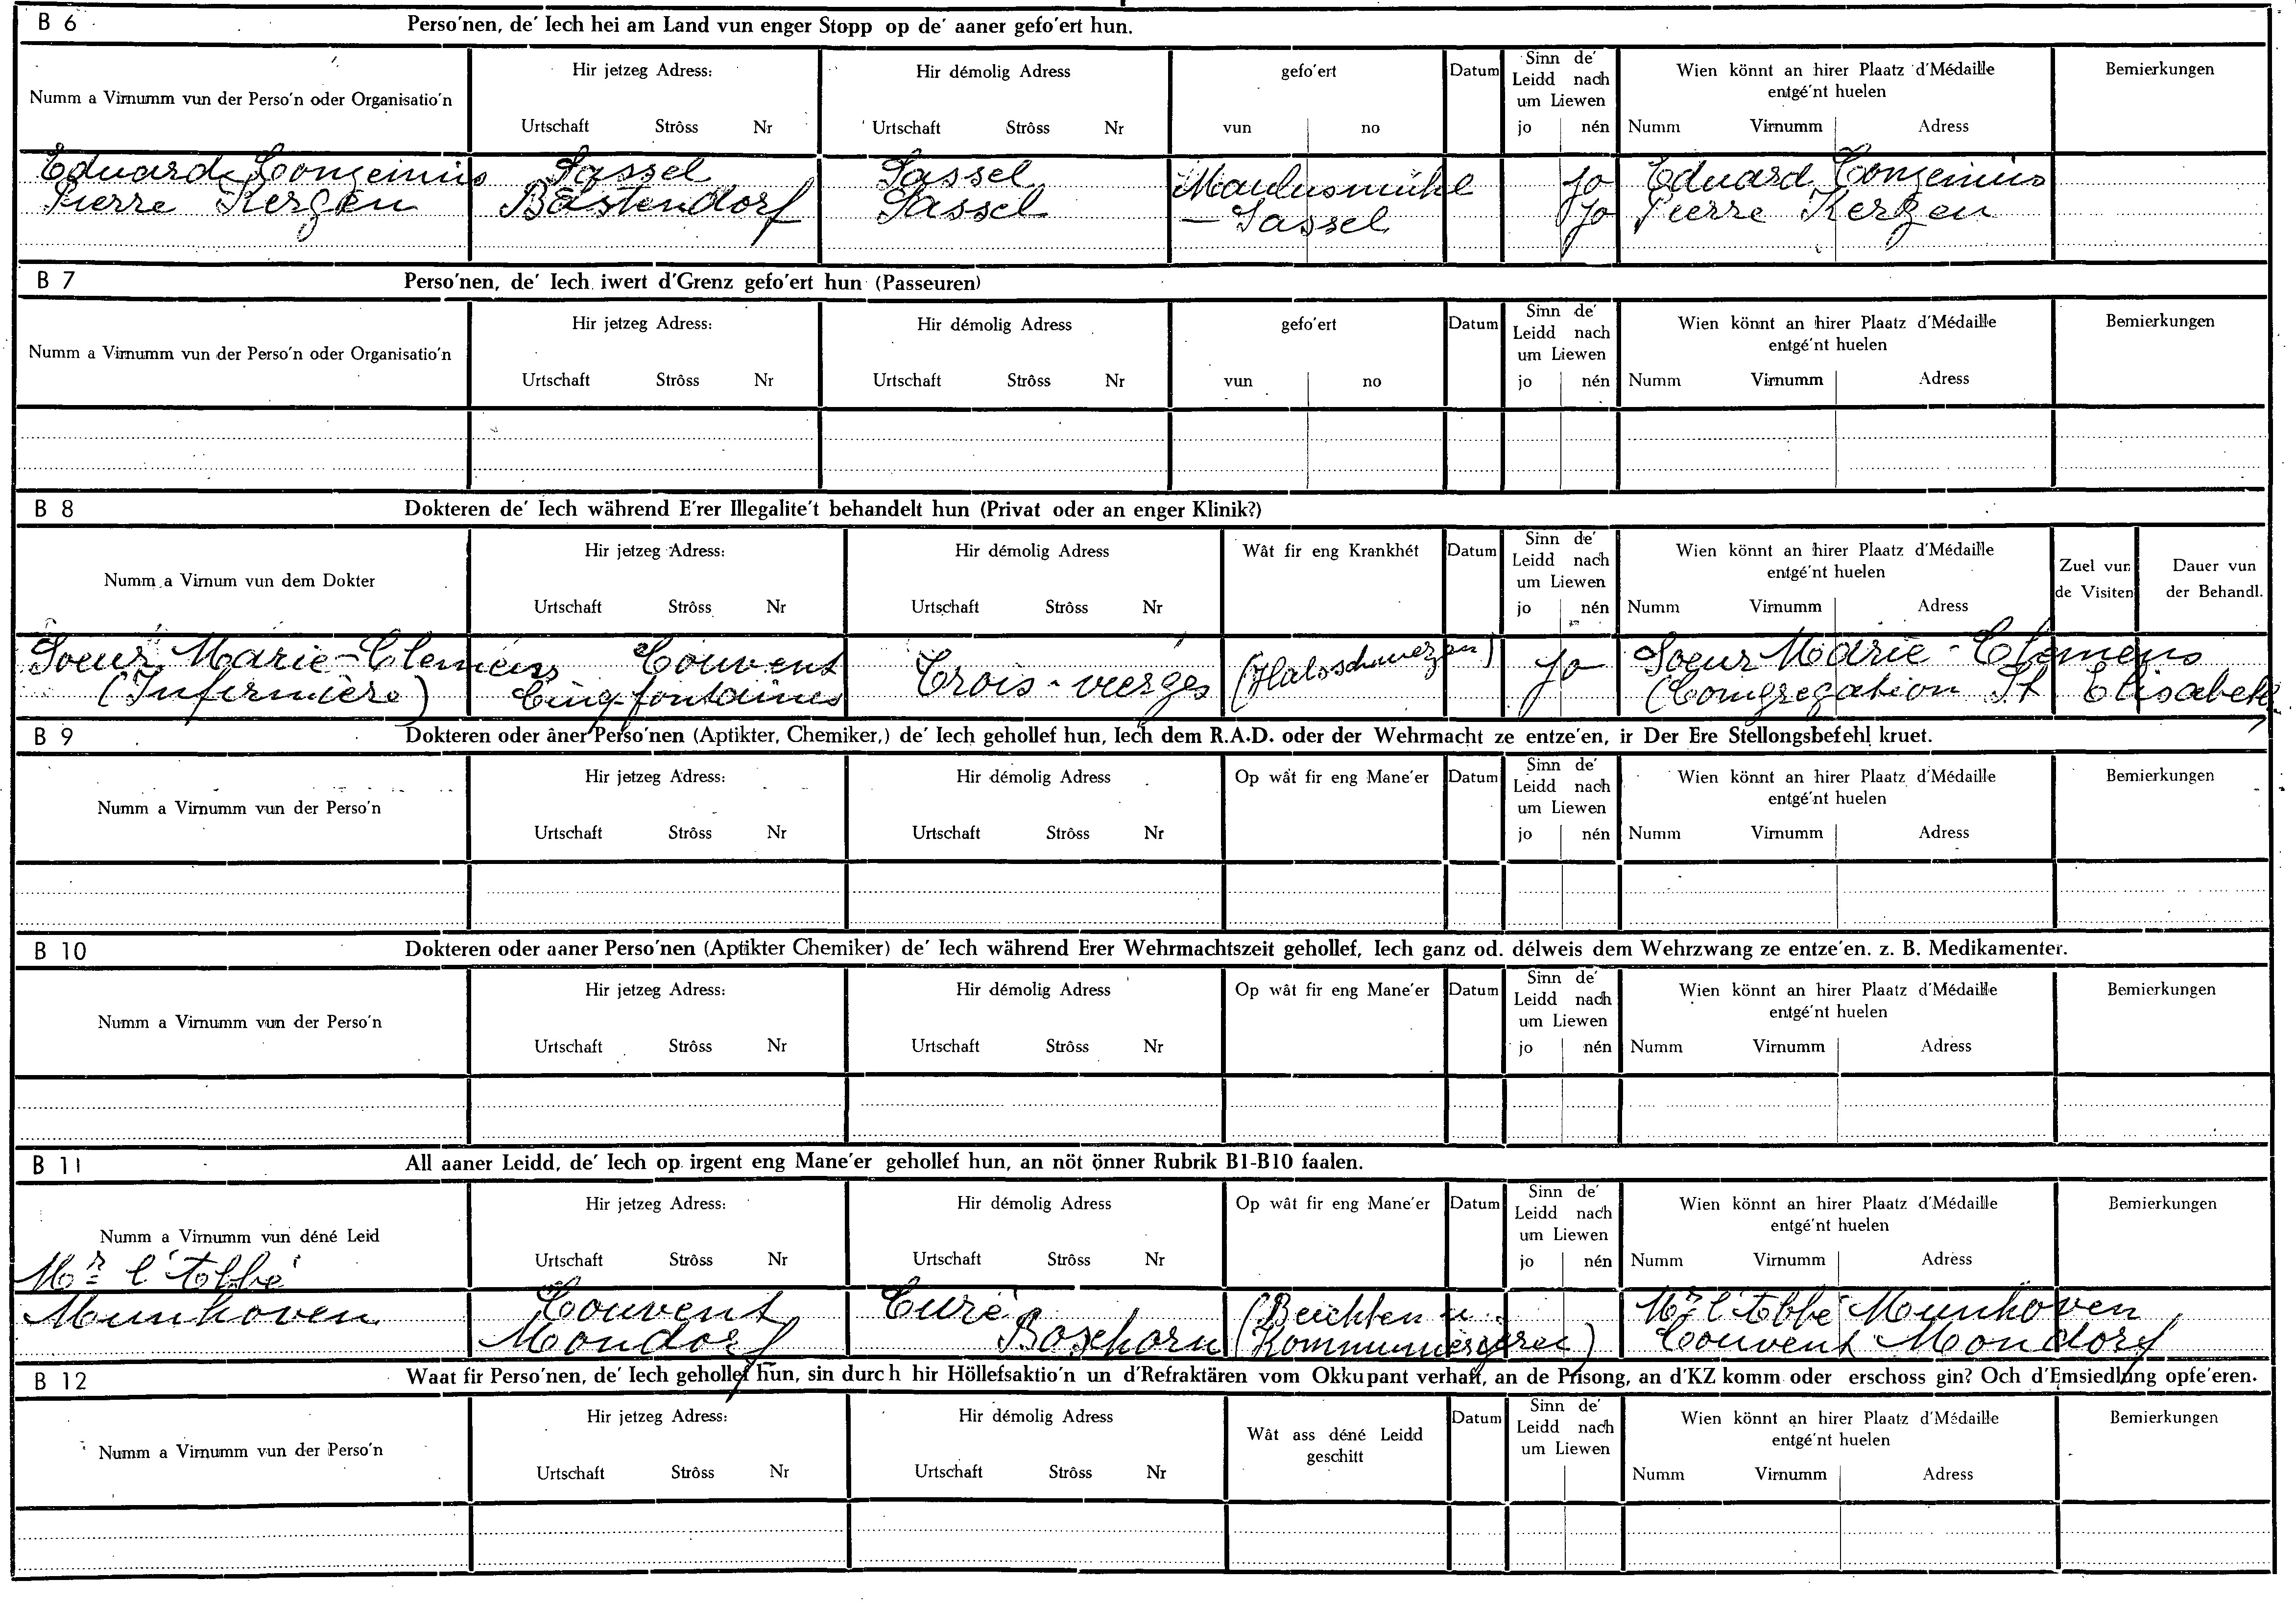 B 6 Perso'nen, de' Iech hei am Land vun enger Stopp op de' aaner gefo'ert hun.
Numm a Virnumm vun der Perso'n oder Organisatio'n Hir jetzeg Adress: Hir démolig Adress gefo'ert Datum Sinn de' Leidd nach um Liewen Wien könnt an hirer Plaatz d'Médaille entgé'nt huelen Bemierkungen
Urtschaft Strôss Nr Urtschaft Strôss Nr vun no jo nén Numm Virnumm Adress
Eduard Conzemius Sassel Sassel Maulusmühl jo Eduard Conzemius
Pierre Kergen Bastendorf Sassel – Sassel jo Pierre Kergen
B 7 Perso'nen, de' Iech iwert d'Grenz gefo'ert hun (Passeuren)
Numm a Virnumm vun der Perso'n oder Organisatio'n Hir jetzeg Adress: Hir démolig Adress gefo'ert Datum Sinn de' Leidd nach um Liewen Wien könnt an hirer Plaatz d'Médaille entgé'nt huelen Bemierkungen
Urtschaft Strôss Nr Urtschaft Strôss Nr vun no jo nén Numm Virnumm Adress
B 8 Dokteren de' Iech während E'rer Illegalite't behandelt hun (Privat oder an enger Klinik?)
Numm a Virnum vun dem Dokter Hir jetzeg Adress: Hir démolig Adress Wât fir eng Krankhét Datum Sinn de' Leidd nach um Liewen Wien könnt an hirer Plaatz d'Médaille entgé'nt huelen Zuel vun de Visiten Dauer vun der Behandl.
Urtschaft Strôss Nr Urtschaft Strôss Nr jo nén Numm Virnumm Adress
Soeur Marie-Clemens Couvent Trois-vierges (Halsschmerzen) jo Soeur Marie-Clemens
(Infirmière) Cinqfontaines (Congregation St Elisabeth)
B 9 Dokteren oder âner Perso'nen (Aptikter, Chemiker,) de' Iech gehollef hun, Iech dem R.A.D. oder der Wehrmacht ze entze'en, ir Der Ere Stellongsbefehl kruet.
Numm a Virnumm vun der Perso'n Hir jetzeg Adress: Hir démolig Adress Op wât fir eng Mane'er Datum Sinn de' Leidd nach um Liewen Wien könnt an hirer Plaatz d'Médaille entgé'nt huelen Bemierkungen
Urtschaft Strôss Nr Urtschaft Strôss Nr jo nén Numm Virnumm Adress
B 10 Dokteren oder aaner Perso'nen (Aptikter Chemiker) de' Iech während Erer Wehrmachtszeit gehollef, Iech ganz od. délweis dem Wehrzwang ze entze'en. z. B. Medikamenter.
Numm a Virnumm vun der Perso'n Hir jetzeg Adress: Hir démolig Adress Op wât fir eng Mane'er Datum Sinn de' Leidd nach um Liewen Wien könnt an hirer Plaatz d'Médaille entgé'nt huelen Bemierkungen
Urtschaft Strôss Nr Urtschaft Strôss Nr jo nén Numm Virnumm Adress
B 11 All aaner Leidd, de' Iech op irgent eng Mane'er gehollef hun, an nöt önner Rubrik B1-B10 faalen.
Numm a Virnumm vun déné Leid Hir jetzeg Adress: Hir démolig Adress Op wât fir eng Mane'er Datum Sinn de' Leidd nach um Liewen Wien könnt an hirer Plaatz d'Médaille entgé'nt huelen Bemierkungen
Urtschaft Strôss Nr Urtschaft Strôss Nr jo nén Numm Virnumm Adress
Mr l'Abbé
Munhoven Couvent Curé (Beichten u. Mr l'Abbé Munhoven
Mondorf Boxhorn Couvent Mondorf
B 12 Waat fir Perso'nen, de' Iech gehollef hun, sin durch hir Höllefsaktio'n un d'Refraktären vom Okkupant verhaft, an de Prisong, an d'KZ komm oder erschoss gin? Och d'Emsiedlung opfe'eren.
Numm a Virnumm vun der Perso'n Hir jetzeg Adress: Hir démolig Adress Wât ass déné Leidd geschitt Datum Sinn de' Leidd nach um Liewen Wien könnt an hirer Plaatz d'Médaille entgé'nt huelen Bemierkungen
Urtschaft Strôss Nr Urtschaft Strôss Nr Numm Virnumm Adress